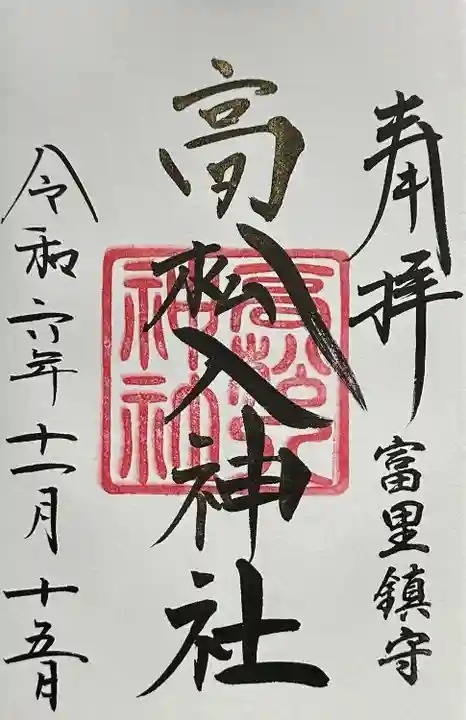 奉拝
富里鎮守
高松入神社
令和六年十一月十五日